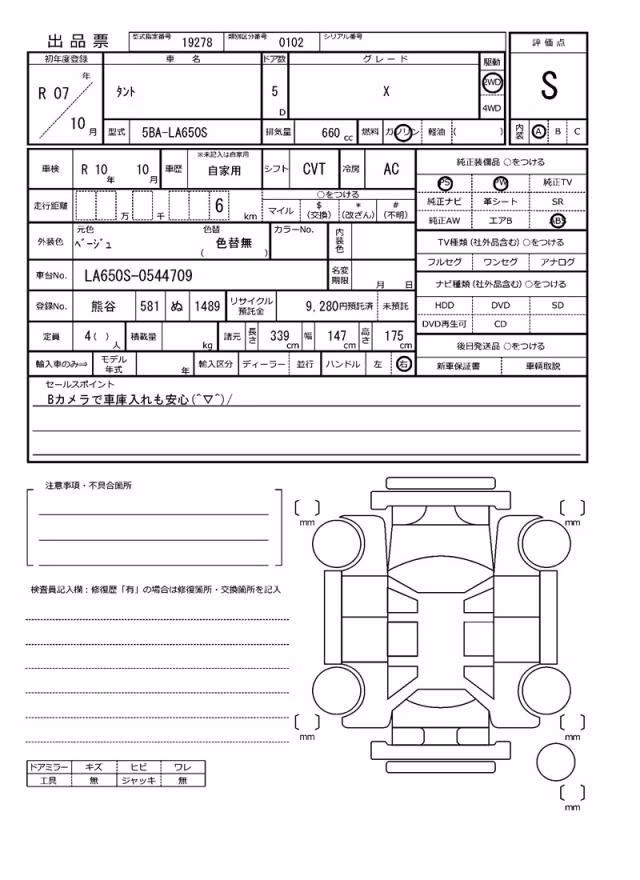 出品票
型式指定番号 19278 類別区分番号 0102 シリアル番号
初年度登録 車名 ドア数 グレード 駆動 評価点
R 07 年 10 月 タント 5 D X 2WD 4WD S
型式 5BA-LA650S 排気量 660 cc 燃料 ガソリン 軽油 ( ) 内装 A B C
車検 R 10 年 10 月 車歴 ※未記入は自家用 自家用 シフト CVT 冷房 AC
走行距離 万 千 6 km
○をつける
マイル $(交換) *(改ざん) #(不明)
外装色 元色 ベージュ 色替 色替無 ( ) カラーNo. 内装色
車台No. LA650S-0544709 名変期限 月 日
登録No. 熊谷 581 ぬ 1489 リサイクル預託金 9,280円預託済 未預託
定員 4( ) 人 積載量 kg 諸元 長さ 339 cm 幅 147 cm 高さ 175 cm
輸入車のみ⇒ モデル年式 年 輸入区分 ディーラー 並行 ハンドル 左 右
純正装備品 ○をつける
PS PW 純正TV
純正ナビ 革シート SR
純正AW エアB ABS
TV種類 (社外品含む) ○をつける
フルセグ ワンセグ アナログ
ナビ種類 (社外品含む) ○をつける
HDD DVD SD
DVD再生可 CD
後日発送品 ○をつける
新車保証書 車輌取説
セールスポイント
Bカメラで車庫入れも安心(^▽^)/
注意事項・不具合箇所
検査員記入欄：修復歴「有」の場合は修復箇所・交換箇所を記入
ドアミラー キズ ヒビ ワレ
工具 無 ジャッキ 無
mm
mm
mm
mm
mm